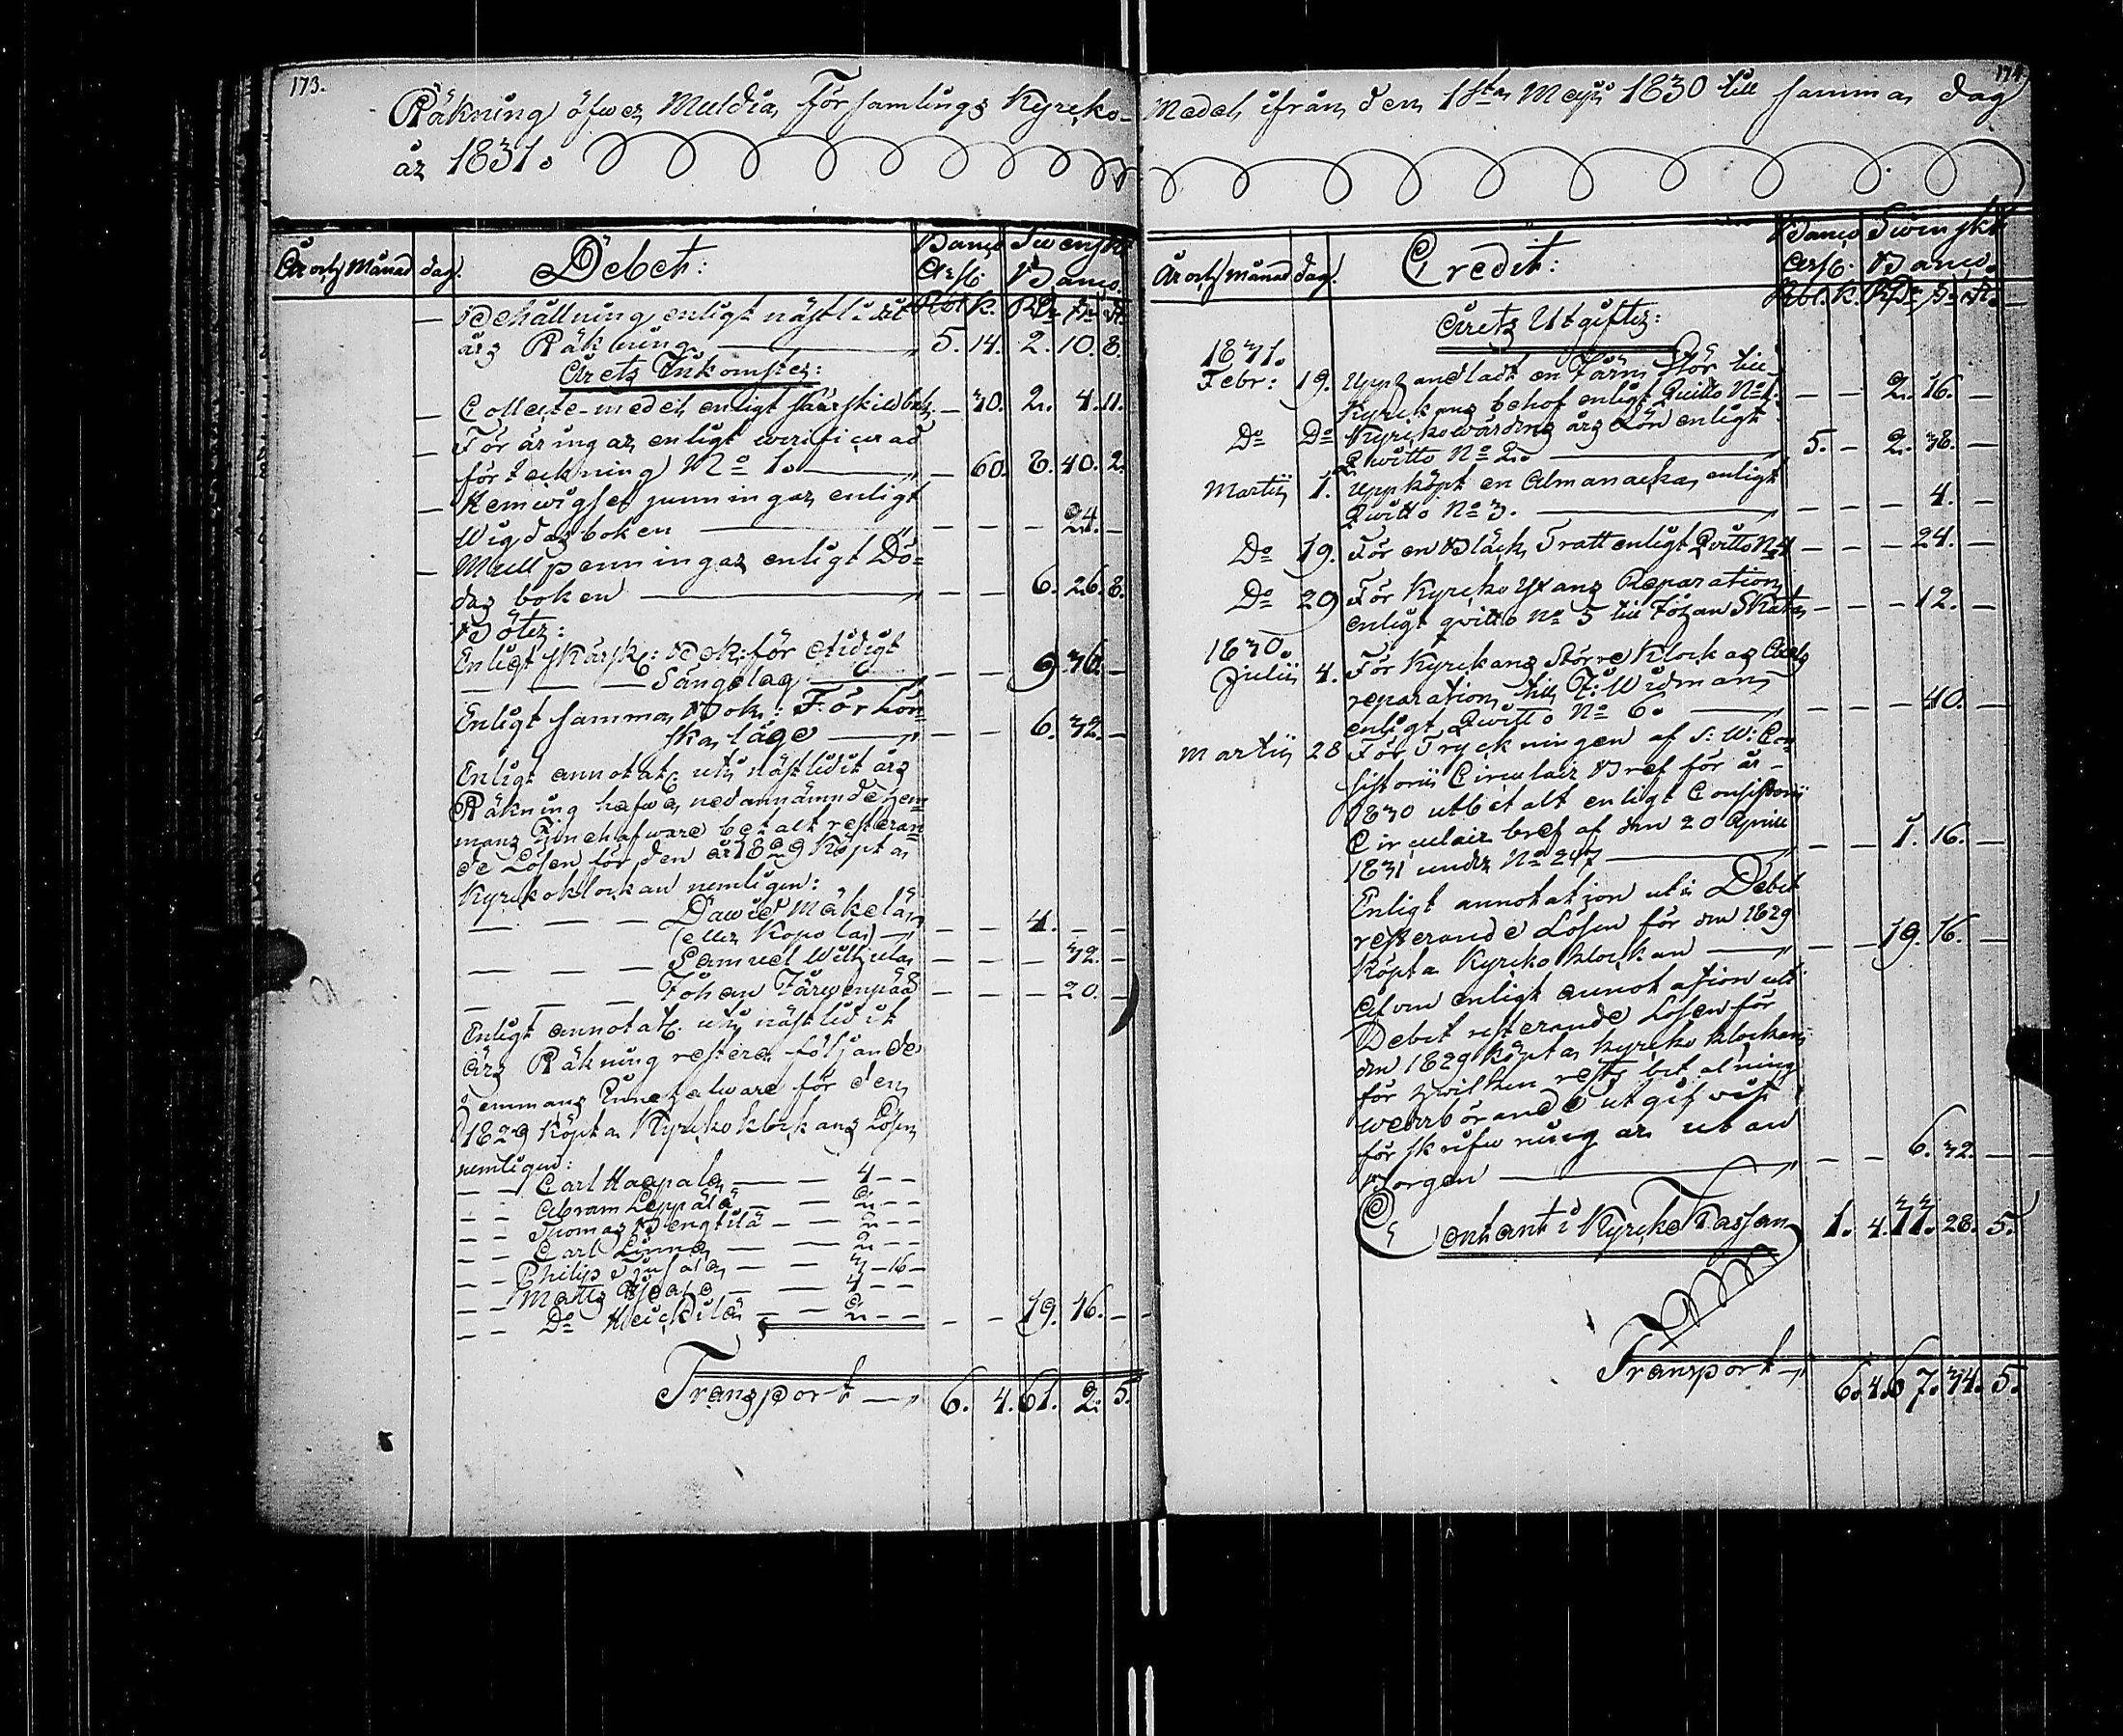 173.
Räkning öfwer Muldia Församlings Kyrcko-
år 1831.
År och Månad dag. Debet: Banco Ass: Swenskt Banco.
Behållning enligt nästledit Rbl. k. RD
års Räkning 5. 14. 2. 10. 8.
Årets Inkomster:
Collecte-medel enligt särskild bok — 30. 2. 4. 11.
Föräringar enligt verificerad
förteckning No 1. — 60. 40. 2.
Hemwigselpenningar enligt
Wigdas boken — — — 24. —
Mullpenningar enligt Dö-
das boken — — 6. 26. 8.
Böter:
Enligt särsk: Bok: för otidigt
— — — Sängelag — — 9. 36. —
Enligt samma Bok: För Lön-
ska läge — — 6. 32. —
Enligt annotat: uti nästledit års
Räkning hafwa nedannämnde hem-
mans Innehafware betalt resteran-
de Lösen för den år 1829 Köpta
Kyrkoklockan nemligen:
— — — Dawid Mäkelä
(eller Kopola) — — 4. — —
— — — Samuel — — — 32. —
— — — Johan Järwenpää — — — 20. —
Enligt annotat: uti nästledit
års Räkning restera följande
hemmans Innehafware för den
1829 Köpta Kyrcko klockans Lösen
nemligen:
— — Carl Haapala — — 4 — —
— — Abram Leppälä — — 2 — —
— — Thomas Bengtilä — — 2 — —
— — Carl Linna — — 2 — —
— — Philip — — 3 — 16 —
— — Matts — — 4 — —
— — Do Heickilä — — 2 — — — — 19. 16. — —
Transport — 6. 4. 61. 2. 5.
174.
Medel ifrån den 1sta Maji 1830 till samma dag
År och månad dag. Credit: Banco Ass: Swenskt Banco.
Rbl. k. RD
Årets Utgifter:
1831.
Febr: 19. Upphandladt en Järn Stör till
Kyrckans behof enligt Quitto No 1. — — 2. 16. —
Do Do Kyrckowärdens års Lön enligt
Quitto No 2. — 5. — 2. 38. —
Martii 1. Uppköpt en Almanacka enligt
Quitto No 3. — — — — 4. —
Do 19. För en Bläck Tratt enligt Qvitto No 4 — — — 24. —
Do 29 För Kyrcko Yxans Reparation
enligt qvitto No 5 till Johan Skata — — — 12. —
1830.
Julii 4. För Kyrckans Större Klockas
reparation till J: Widman
enligt Quitto No 6. — — — — 40. —
Martii 28 För Tryckningen af S: W: Con-
sistorii Circulair Bref för år
1830 utbetalt enligt Consistorii
Circulair bref af den 20 Aprill
1831 under No 247 — — — 1. 16. —
Enligt annotation uti Debet
resterande Lösen för den 1829
Köpta Kyrcko klockan — — — 19. 16. —
Äfven enligt annotation uti
Debet resterande Lösen för
den 1829 köpta kyrcko klockan
för hwilken rests betalning
wederbörande utgifvit
förskrifwningar utan
Borgen — — — 6. 32. — —
Contant i Kyrcko Kassan 1. 4. 33. 28. 5.
Transport — 6. 4. 67. 34. 5.